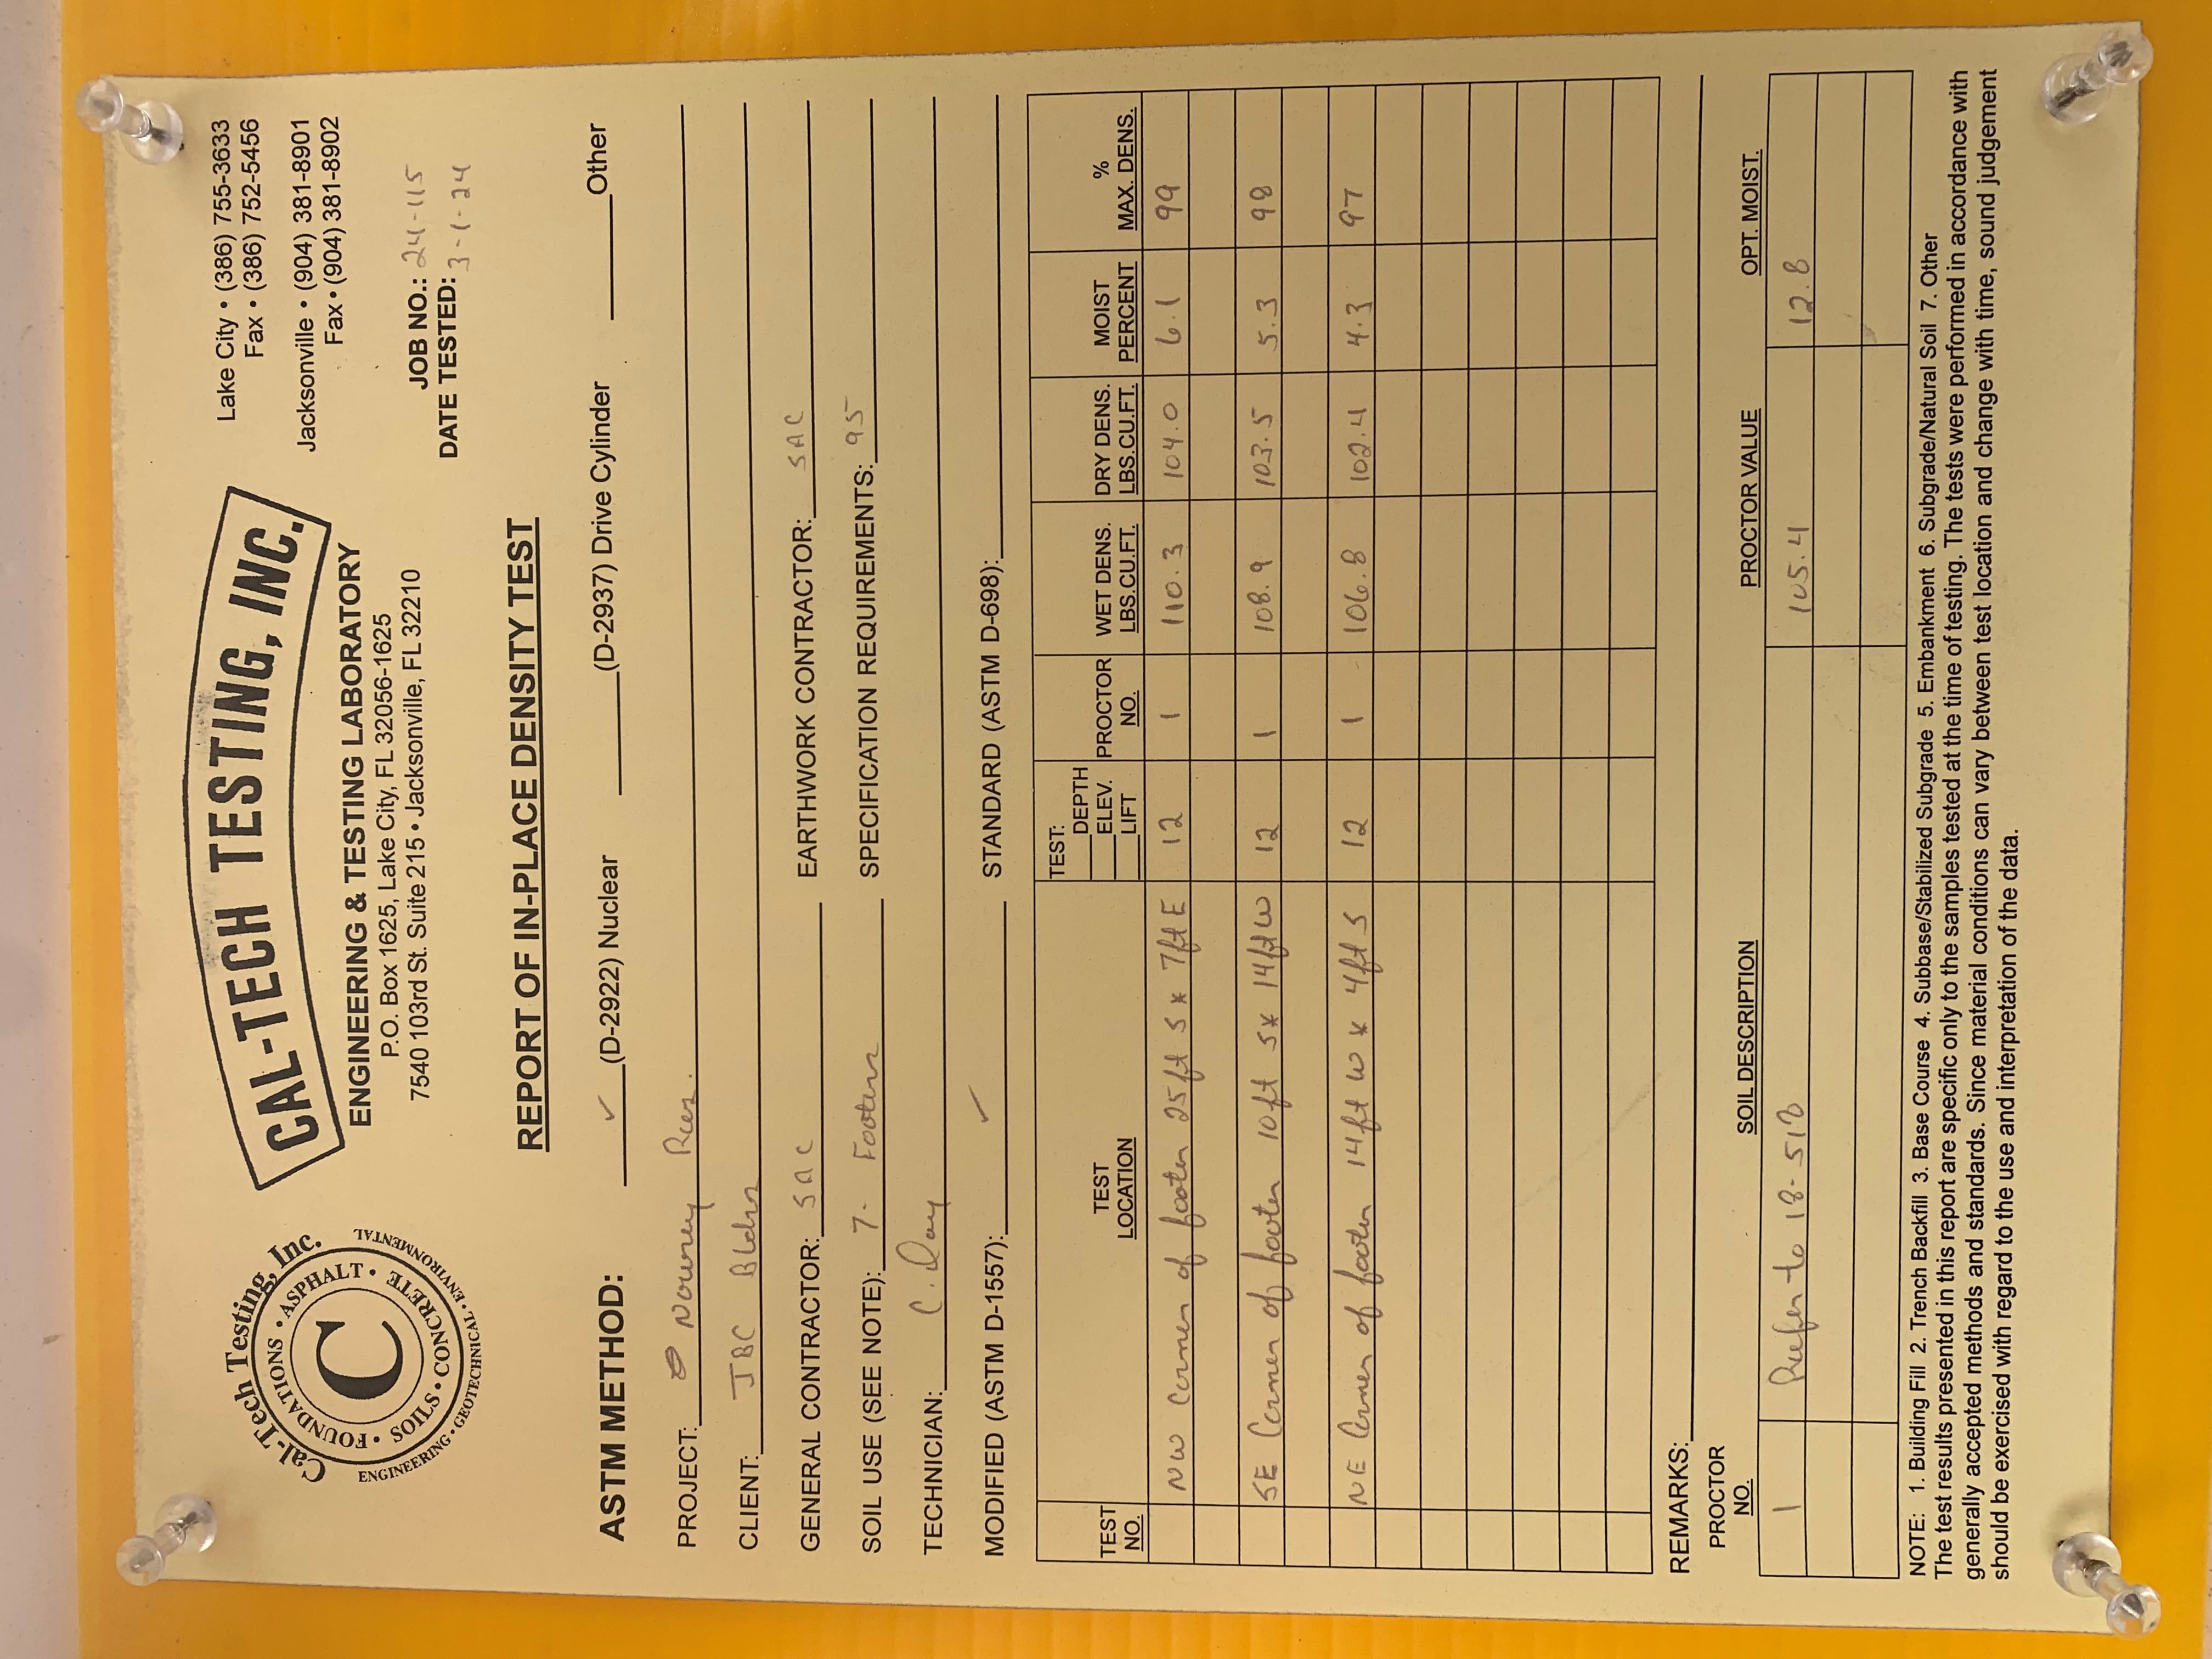 Cal-Tech Testing, Inc.
FOUNDATIONS • ASPHALT •
SOILS • CONCRETE
ENGINEERING • GEOTECHNICAL • ENVIRONMENTAL
C
CAL-TECH TESTING, INC.
ENGINEERING & TESTING LABORATORY
P.O. Box 1625, Lake City, FL 32056-1625
7540 103rd St. Suite 215 • Jacksonville, FL 32210
Lake City • (386) 755-3633
Fax • (386) 752-5456
Jacksonville • (904) 381-8901
Fax • (904) 381-8902
JOB NO.: 24-115
DATE TESTED: 3-1-24
REPORT OF IN-PLACE DENSITY TEST
ASTM METHOD: ✓ (D-2922) Nuclear (D-2937) Drive Cylinder Other
PROJECT:
CLIENT: JBC Bldrs
GENERAL CONTRACTOR: SAC EARTHWORK CONTRACTOR: SAC
SOIL USE (SEE NOTE): 7- Footers SPECIFICATION REQUIREMENTS: 95
TECHNICIAN: C. Day
MODIFIED (ASTM D-1557): ✓ STANDARD (ASTM D-698):
TEST NO. TEST LOCATION TEST: DEPTH ELEV. LIFT PROCTOR NO. WET DENS. LBS.CU.FT. DRY DENS. LBS.CU.FT. MOIST PERCENT % MAX. DENS.
NW Corner of footer 25ft S x 7ft E 12 1 110.3 104.0 6.1 99
SE Corner of footer 10ft S x 14ft W 12 1 108.9 103.5 5.3 98
NE Corner of footer 14ft W x 4ft S 12 1 106.8 102.4 4.3 97
REMARKS:
PROCTOR NO. SOIL DESCRIPTION PROCTOR VALUE OPT. MOIST.
1 Refer to 18-512 105.4 12.8
NOTE: 1. Building Fill 2. Trench Backfill 3. Base Course 4. Subbase/Stabilized Subgrade 5. Embankment 6. Subgrade/Natural Soil 7. Other
The test results presented in this report are specific only to the samples tested at the time of testing. The tests were performed in accordance with
generally accepted methods and standards. Since material conditions can vary between test location and change with time, sound judgement
should be exercised with regard to the use and interpretation of the data.